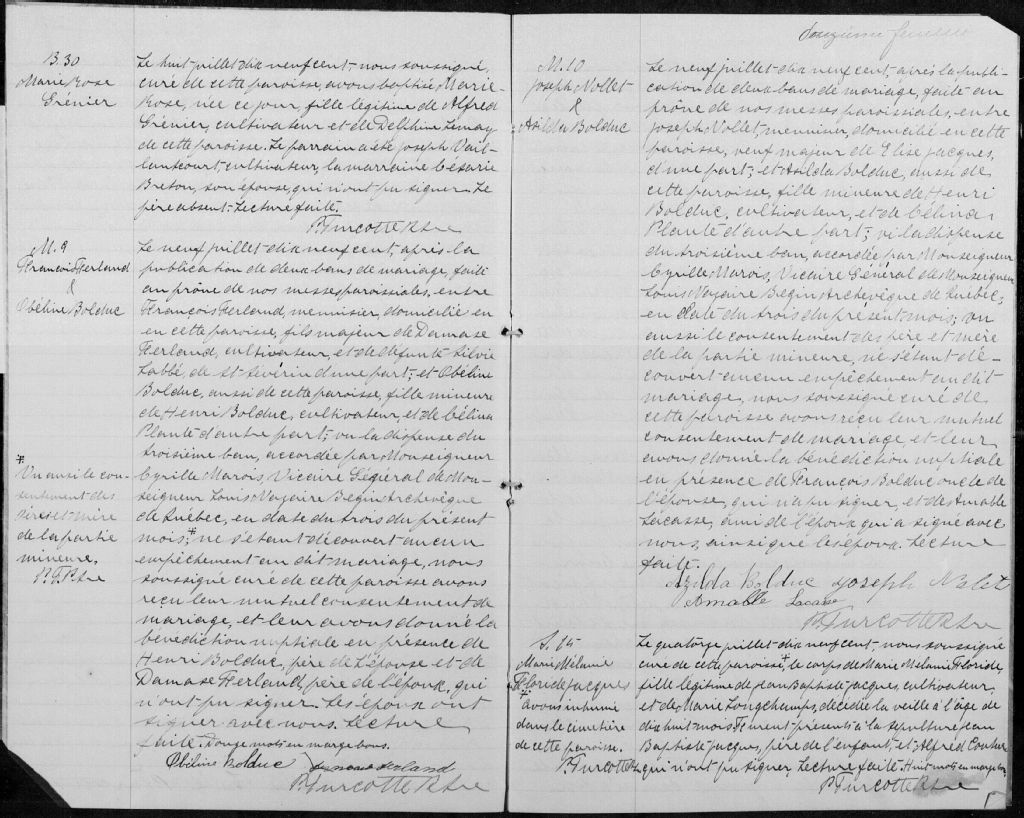 B.30
Marie Rose
Grénier
Le huit juillet dix neuf cent, nous soussigné,
curé de cette paroisse, avons baptisé, Marie-
Rose, née ce jour, fille légitime de Alfred
Grénier, cultivateur et de Delphine Lemay
de cette paroisse. Le parrain a été Joseph Vail-
lancourt, cultivateur, la marraine Césarie
Breton, son épouse, qui n'ont pu signer. Le
père absent. Lecture faite.
P. Turcotte Ptre
M. 9
François Ferland
&
Obéline Bolduc
Le neuf juillet dix neuf cent, après la
publication de deux bans de mariage, faite
au prône de nos messes paroissiales, entre
François Ferland menuisier, domicilié en
en cette paroisse, fils majeur de Damase
Ferland, cultivateur, et de défunte Silvie
Labbé, de St Sévérin d'une part; et Obéline
Bolduc, aussi de cette paroisse, fille mineure
de Henri Bolduc, cultivateur, et de Célina
Planté d'autre part; vu la dispense du
troisième ban, accordée par Monseigneur
Cyrille Marois, Vicaire Général de Mon-
seigneur Louis Nazaire Begin Archevêque
de Québec, en date du trois du présent
mois;* ne s'étant découvert aucun
empêchement au dit mariage, nous
soussigné curé de cette paroisse avons
reçu leur mutuel consentement de
mariage, et leur avons donné la
bénédiction nuptiale en présence de
Henri Bolduc, père de l'épouse et de
Damase Ferland, père de l'époux, qui
n'ont pu signer. Les époux ont
signer avec nous. Lecture
faite. Douze mots en marge bons.
Obéline Bolduc François Ferland
P. Turcotte Ptre
*
Vu aussi le con-
sentement des
père et mère
de la partie
mineure.
P. T. Ptre
Douzième feuillet
M. 10
Joseph Nollet
&
Asilda Bolduc
Le neuf juillet dix neuf cent, après la publi-
cation de deux bans de mariage, faite au
prône de nos messes paroissiales, entre
Joseph Nollet, menuisier, domicilié en cette
paroisse, veuf majeur de Elise Jacques,
d'une part; et Asilda Bolduc, aussi de
cette paroisse, fille mineure de Henri
Bolduc, cultivateur, et de Célina
Planté d'autre part; vu la dispense
du troisième ban, accordée par Monseigneur
Cyrille Marois, Vicaire Général de Monseigneur
Louis Nazaire Begin Archevêque de Québec,
en date du trois du présent mois; vu
aussi le consentement des père et mère
de la partie mineure, ne s'étant dé-
couvert aucun empêchement au dit
mariage, nous soussigné curé de
cette paroisse avons reçu leur mutuel
consentement de mariage et leur
avons donné la bénédiction nuptiale
en présence de François Bolduc oncle de
l'épouse, qui n'a pu signer, et de Amable
Lacasse, ami de l'époux qui a signé avec
nous, ainsi que les époux. Lecture
faite.
Azilda Bolduc Joseph Nolet
Amable Lacasse
P. Turcotte Ptre
S. 15
Marie Mélanie
Floride Jacques
*
avons inhumé
dans le cimetière
de cette paroisse.
P. Turcotte
Le quatorze juillet dix neuf cent, nous soussigné
curé de cette paroisse* le corps de Marie Mélanie Floride,
fille légitime de Jean Baptiste Jacques, cultivateur,
et de Marie Longchamps, décédée la veille à l'âge de
dix huit mois. Furent présents à la sépulture Jean
Baptiste Jacques, père de l'enfant, et Alfred Couture
qui n'ont pu signer. Lecture faite. Huit mots en marge bons
P. Turcotte Ptre